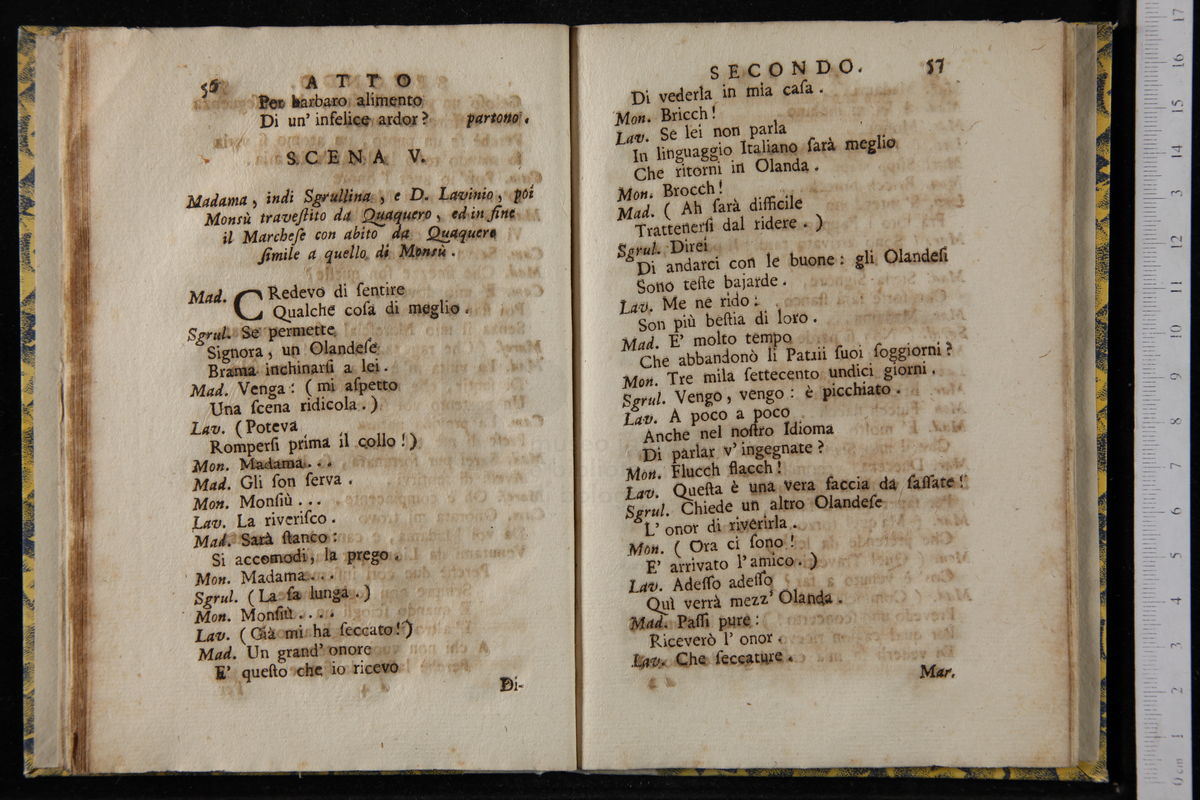 56 ATTO
Per barbaro alimento
Di un' infelice ardor? partono.
SCENA V.
Madama, indi Sgrullina, e D. Lavinio, poi
Monsù traveſtito da Quaquero, ed in fine
il Marcheſe con abito da Quaquero
ſimile a quello di Monsù.
Mad. CRedevo di ſentire
Qualche coſa di meglio.
Sgrul. Se permette
Signora, un Olandeſe
Brama inchinarſi a lei.
Mad. Venga: (mi aſpetto
Una ſcena ridicola.)
Lav. (Poteva
Romperſi prima il collo!)
Mon. Madama...
Mad. Gli ſon ſerva.
Mon. Monſiù...
Lav. La riveriſco.
Mad. Sarà ſtanco:
Si accomodi, la prego.
Mon. Madama....
Sgrul. (La fa lunga.)
Mon. Monſiù....
Lav. (Già mi ha ſeccato!)
Mad. Un grand' onore
E' queſto che io ricevo
Di-
SECONDO. 57
Di vederla in mia caſa.
Mon. Bricch!
Lav. Se lei non parla
In linguaggio Italiano ſarà meglio
Che ritorni in Olanda.
Mon. Brocch!
Mad. (Ah ſarà difficile
Trattenerſi dal ridere.)
Sgrul. Direi
Di andarci con le buone: gli Olandeſi
Sono teſte bajarde.
Lav. Me ne rido:
Son più beſtia di loro.
Mad. E' molto tempo
Che abbandonò li Patrii ſuoi ſoggiorni?
Mon. Tre mila ſettecento undici giorni.
Sgrul. Vengo, vengo: è picchiato.
Lav. A poco a poco
Anche nel noſtro Idioma
Di parlar v' ingegnate?
Mon. Flucch flacch!
Lav. Queſta è una vera faccia da ſaſſate!
Sgrul. Chiede un altro Olandeſe
L' onor di riverirla.
Mon. (Ora ci ſono!
E' arrivato l'amico.)
Lav. Adeſſo adeſſo
Quì verrà mezz' Olanda.
Mad. Paſſi pure:
Riceverò l' onor.
Lav. Che ſeccature.
Mar.